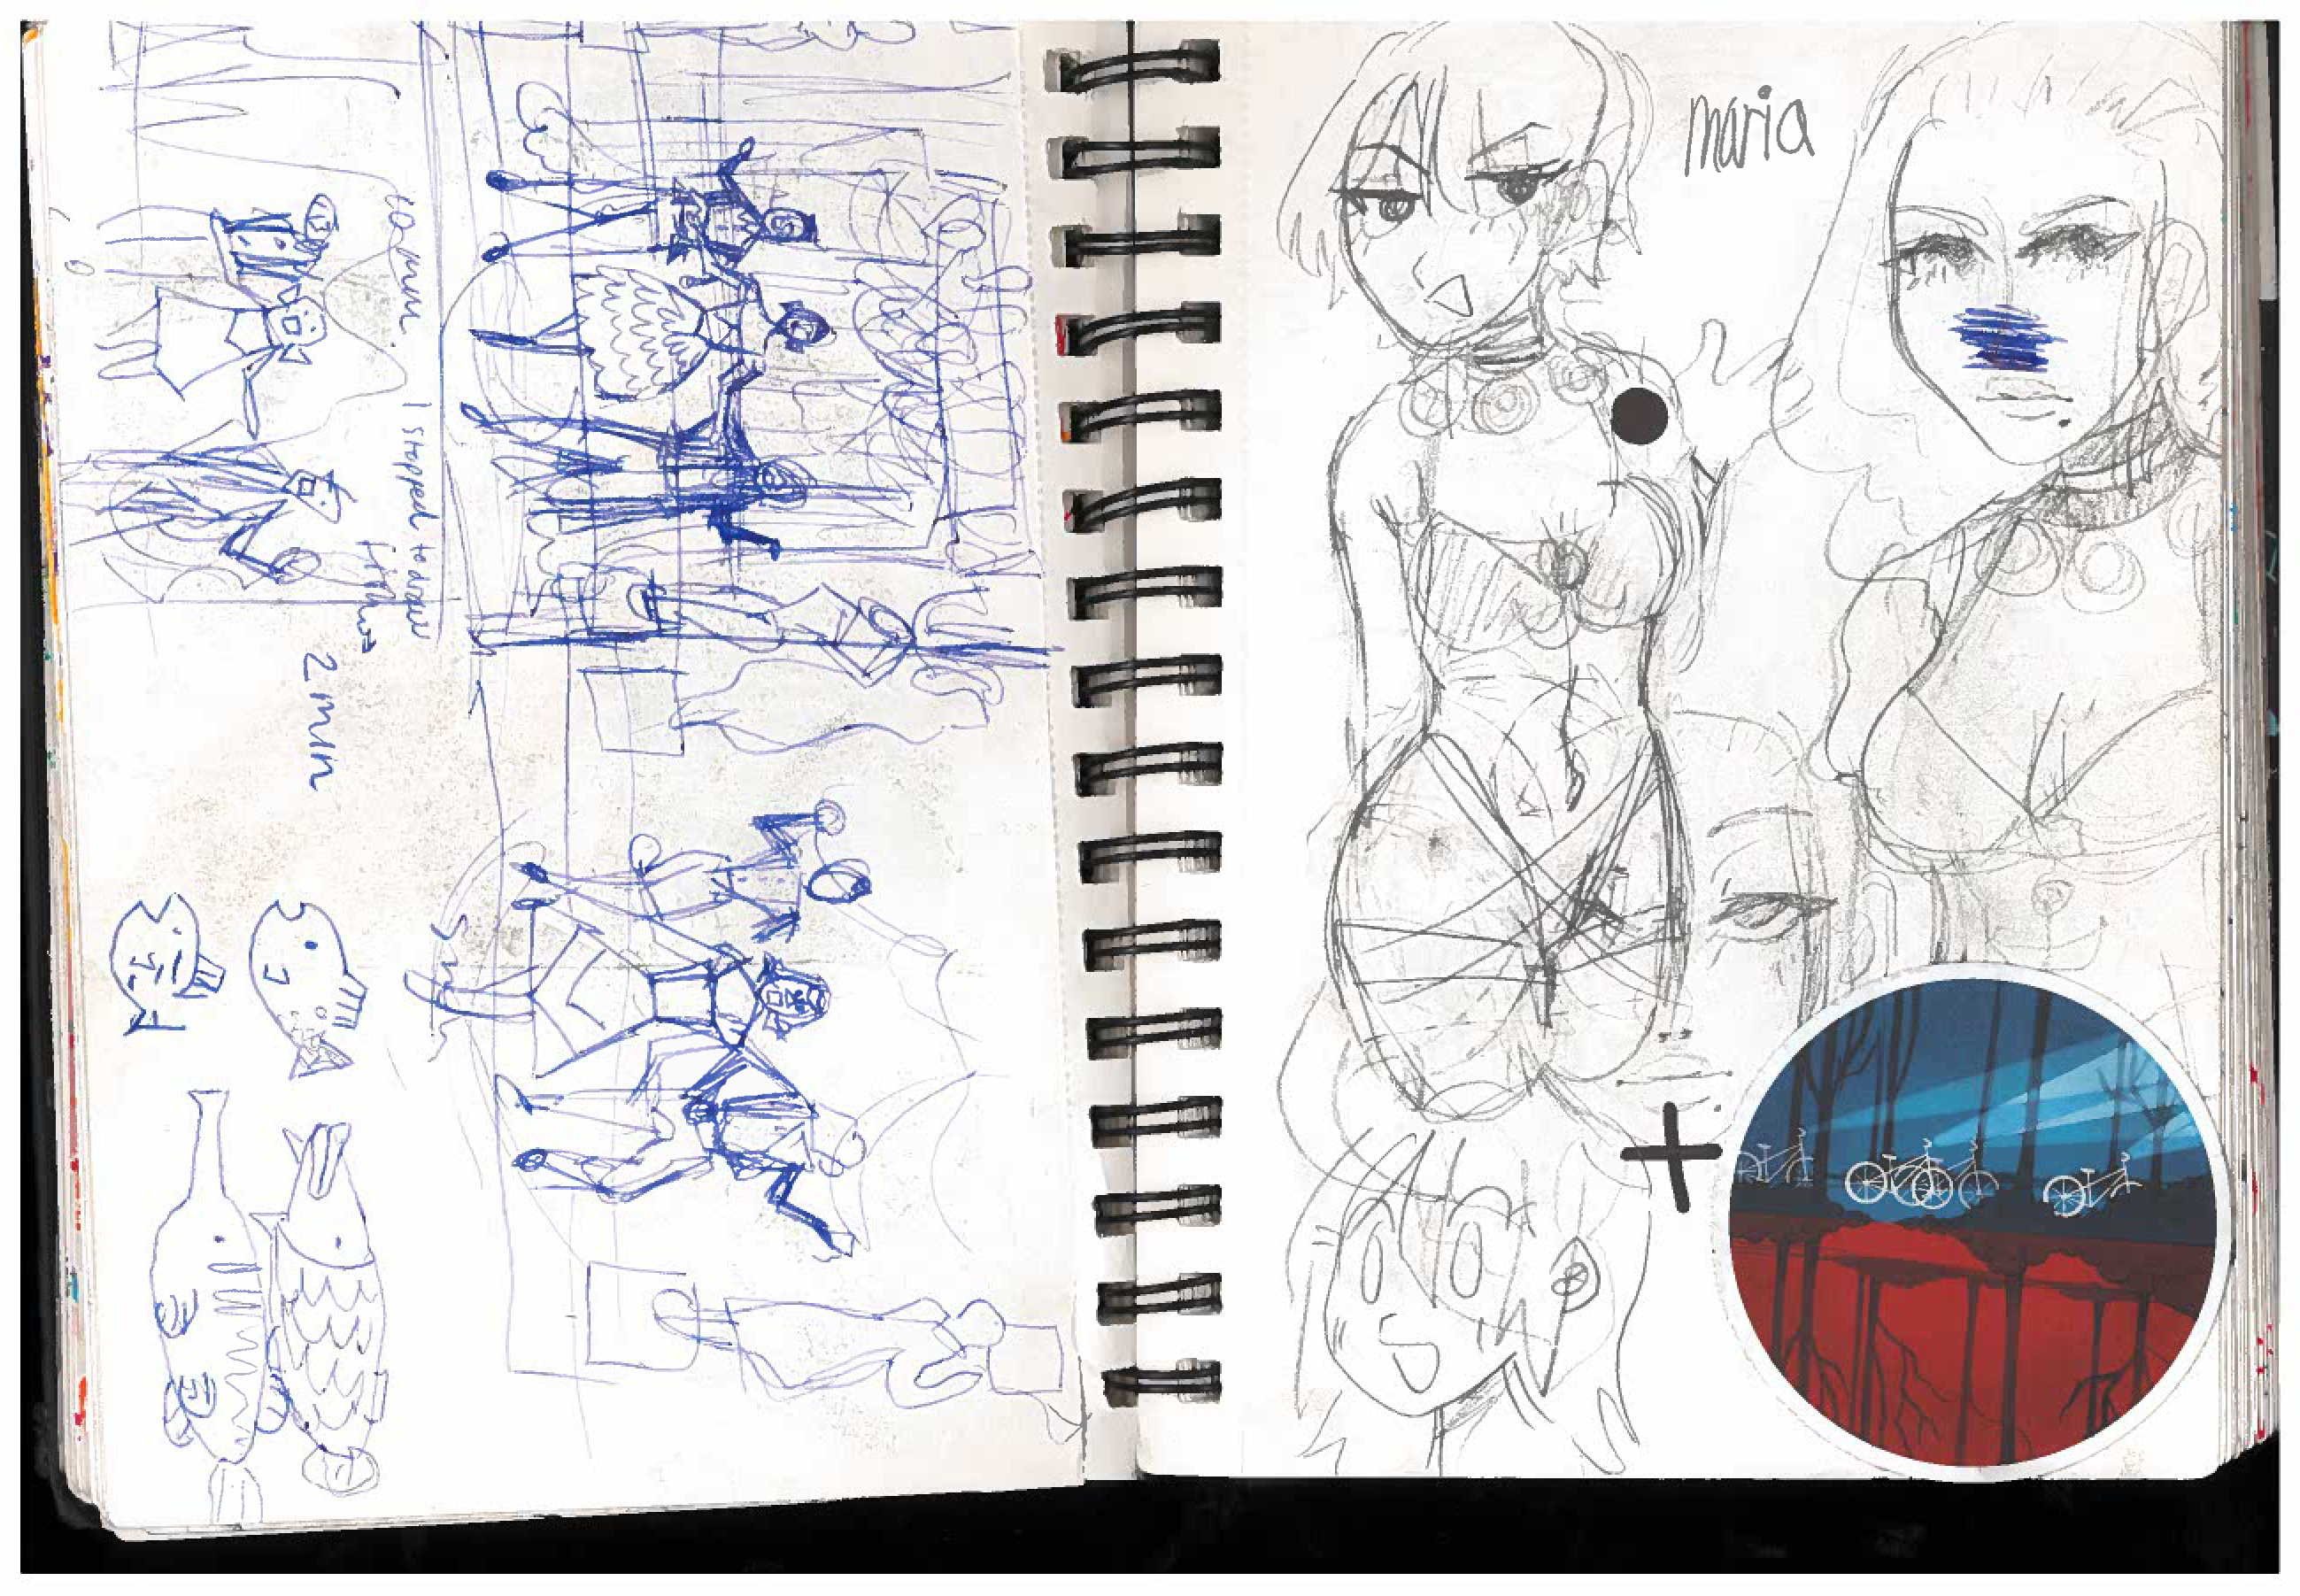 10 min.
I stopped to draw
2 min
maria